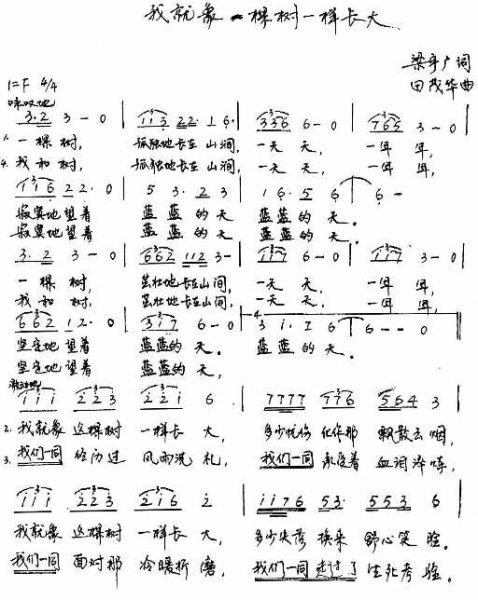 我就象一棵树一样长大
梁宇广词
田茂华曲
1=F 4/4
3·2 3-0 | 113 22· 16· | 336 6-0 | 763 3-0 |
1. 一棵树, 孤独地长在山涧, 一天天, 一年年,
4. 我和树, 孤独地长在山涧, 一天天, 一年年,
116 22·0 | 5 3·2 3 | 16·56 | 6- |
寂寞地望着 蓝蓝的天 蓝蓝的天。
寂寞地望着 蓝蓝的天 蓝蓝的天。
3·2 3-0 | 662 112 3- | 117 6-0 | 117 3-0 |
一棵树, 茁壮地长在山间, 一天天, 一年年,
我和树, 茁壮地长在山间, 一天天, 一年年,
662 12·0 | 317 6-0 | 4. 3 1·16 | 6--0 |
坚定地望着 蓝蓝的天。 蓝蓝的天。
坚定地望着 蓝蓝的天,
111 223 221 6 | 7777 776 564 3 |
2. 我就象 这棵树 一样长大, 多少忧伤 化作那 飘散云烟,
3. 我们一同 经历过 风雨洗礼, 我们一同 承受着 血泪
111 223 216 2 | 1176 53· 553 6
我就象 这棵树 一样长大, 多少失落 换来 舒心笑脸。
我们一同 面对那 冷暖折磨, 我们一同 走过了 生死考验。